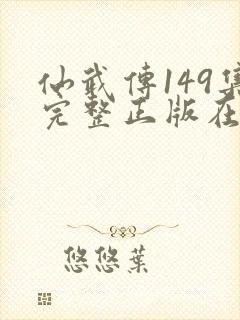 仙武傳149集
完整正版在
悠悠葉